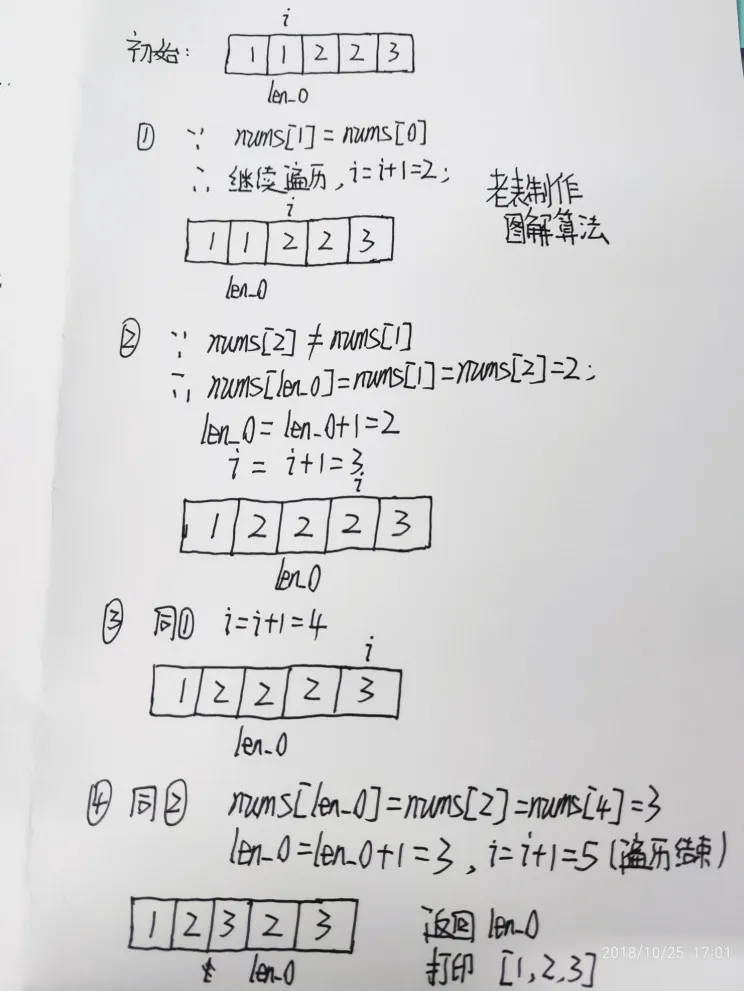 i
初始: 1 1 2 2 3
len_0
① ∵ nums[1] = nums[0]
∴ 继续遍历, i=i+1=2;
老表制作
图解算法
i
1 1 2 2 3
len_0
② ∵ nums[2] ≠ nums[1]
∴ nums[len_0]=nums[1]=nums[2]=2;
len_0= len_0+1=2
i = i+1=3
i
1 2 2 2 3
len_0
③ 同① i=i+1=4
i
1 2 2 2 3
len_0
④ 同② nums[len_0]=nums[2]=nums[4]=3
len_0=len_0+1=3, i=i+1=5 (遍历结束)
1 2 3 2 3
len_0
返回 len_0
打印 [1,2,3]
2018/10/25 17:01